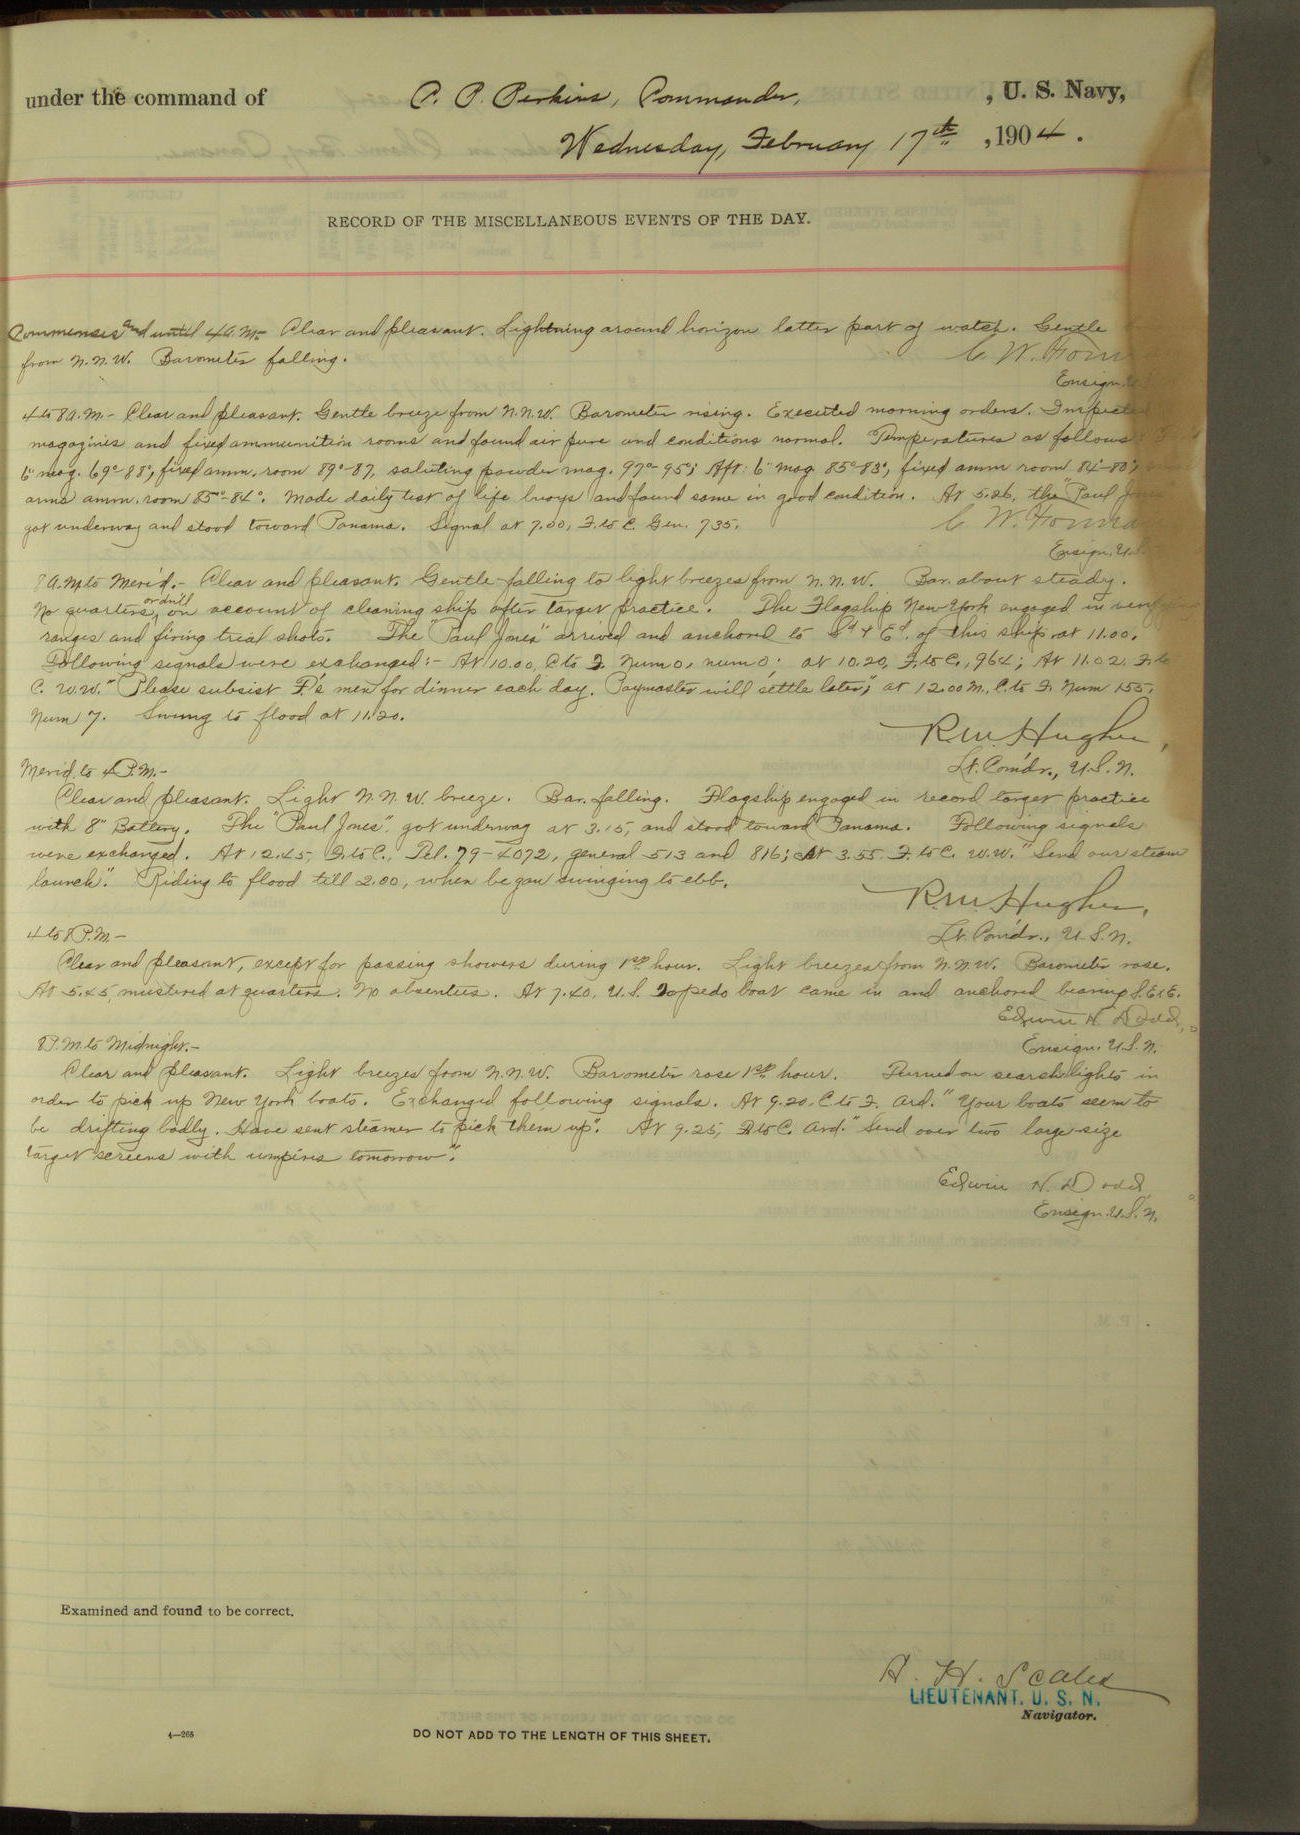 under the command of C. P. Perkins, Commander, , U. S. Navy,
Wednesday, February 17th , 1904.
RECORD OF THE MISCELLANEOUS EVENTS OF THE DAY.
Commences and until 4 A.M.- Clear and pleasant. Lightning around horizon latter part of watch. Gentle
from N.N.W. Barometer falling.
C. W. Forma
Ensign, U.
4 to 8 A.M.- Clear and pleasant. Gentle breeze from N.N.W. Barometer rising. Executed morning orders. Inspected
magazines and fixed ammunition rooms and found air pure and conditions normal. Temperatures as follows:
6" mag. 69°-88°, fixed amm. room 89°-87, saluting powder mag. 97°-95°; Aft: 6" mag 85°-83°, fixed amm room 84°-80°,
arms amm. room 85°-84°. Made daily test of life buoys and found same in good condition. At 5.26, the "Paul Jones"
got underway and stood toward Panama. Signal at 7.00, F. to C. Gen. 735.
C. W. Forma
Ensign, U.S.
8 A.M. to Merid.- Clear and pleasant. Gentle falling to light breezes from N.N.W. Bar. about steady.
No quarters or drill on account of cleaning ship after target practice. The Flagship New York engaged in verifying
ranges and firing trial shots. The "Paul Jones" arrived and anchored to Sd & Ed. of this ship at 11.00.
Following signals were exchanged:- At 10.00, C to F. Num 0, num 0; at 10.20, F. to C., 964; At 11.02, F. to
C. W.W. "Please subsist F's men for dinner each day. Paymaster will settle later"; at 12.00 M., C. to F. Num 155,
Num 7. Swung to flood at 11.20.
R. M. Hughes,
Lt. Comdr., U.S.N.
Merid. to 4 P.M.-
Clear and pleasant. Light N.N.W. breeze. Bar. falling. Flagship engaged in record target practice
with 8" Battery. The "Paul Jones" got underway at 3.15, and stood toward Panama. Following signals
were exchanged. At 12.45, F. to C., Tel. 79-4072, general 513 and 816; At 3.55 F. to C. W.W. "Send our steam
launch". Riding to flood till 2.00, when began swinging to ebb.
R. M. Hughes,
Lt. Comdr., U.S.N.
4 to 8 P.M.-
Clear and pleasant, except for passing showers during 1st hour. Light breezes from N.N.W. Barometer rose.
At 5.45, mustered at quarters. No absentees. At 7.40, U.S. Torpedo boat came in and anchored bearing S.E. & E.
Edwin H. Dodd,
Ensign. U.S.N.
8 P.M. to Midnight.-
Clear and pleasant. Light breezes from N.N.W. Barometer rose 1st hour. Turned on search lights in
order to pick up New York boats. Exchanged following signals. At 9.20, C. to F. Ard. "Your boats seem to
be drifting badly. Have sent steamer to pick them up". At 9.25, F. to C. Ard. "Send over two large size
target screens with umpires tomorrow".
Edwin H. Dodd,
Ensign. U.S.N.
Examined and found to be correct.
A. H. Scales
LIEUTENANT. U. S. N.
Navigator.
4—265
DO NOT ADD TO THE LENGTH OF THIS SHEET.